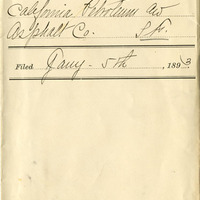 California Petroleum and
Asphalt Co. S.F.
Filed Jany - 5th, 1893